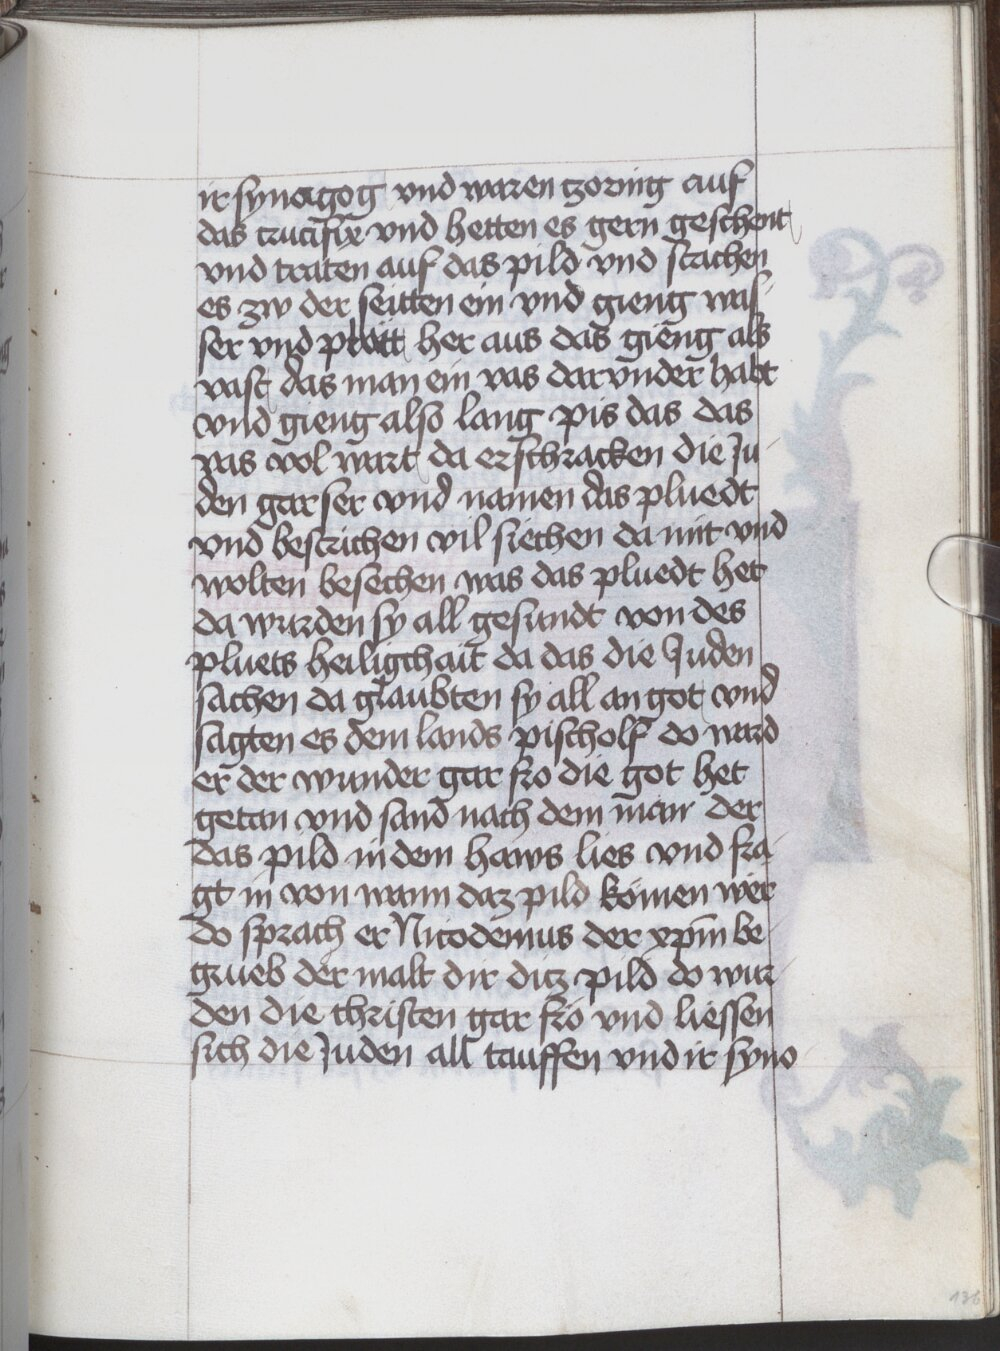 ir synagog vnd waren czornig auf
das crucifix vnd hetten es gern geschent
vnd traten auf das pild vnd stachen
es zw der seitten ein vnd gieng was
ser vnd pluett her aus das gieng als
vast das man ein vas darvnder habt
vnd gieng also lang pis das das
vas vol wart da erschracken die Ju
den gar ser vnd namen das pluedt
vnd bestrichen vil siechen da mit vnd
wolten besechen was das pluedt het
da wurden sy all gesundt von des
pluets heiligchait da das die Juden
sachen da glaubten sy all an got vnd
sagten es dem lands pischolf do ward
er der wunder gar fro die got het
getan vnd sand nach dem man der
das pild in dem haws lies vnd fra
gt in von wann daz pild komen wer
do sprach er Nicodemus der xpm be
grueb der malt dir dicz pild do wur
den die christen gar fro vnd liessen
sich die Juden all tauffen vnd ir syno
136